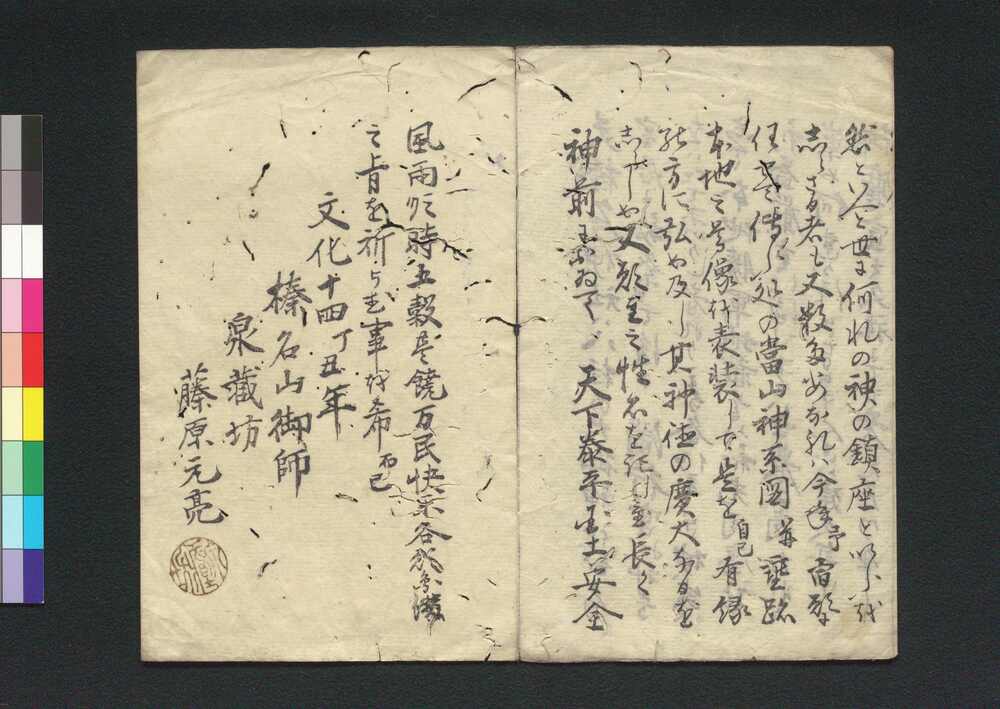 然といへと世に何れの神の鎮座といふを
しらさる者も又数多あるなれハ今度予宿願
任せ伝ふ処の當山神系図并垂跡
本地之尊像を表装し是を自己有縁
の方に弘め及し其神徳の廣大なるを
しらしめ又願主之性名を記し長く
神前におゐてハ天下泰平国土安全
風雨順時五穀豊饒万民快楽
之旨を祈らむ事を希而已
文化十四丁丑年
榛名山御師
泉蔵坊
藤原元亮